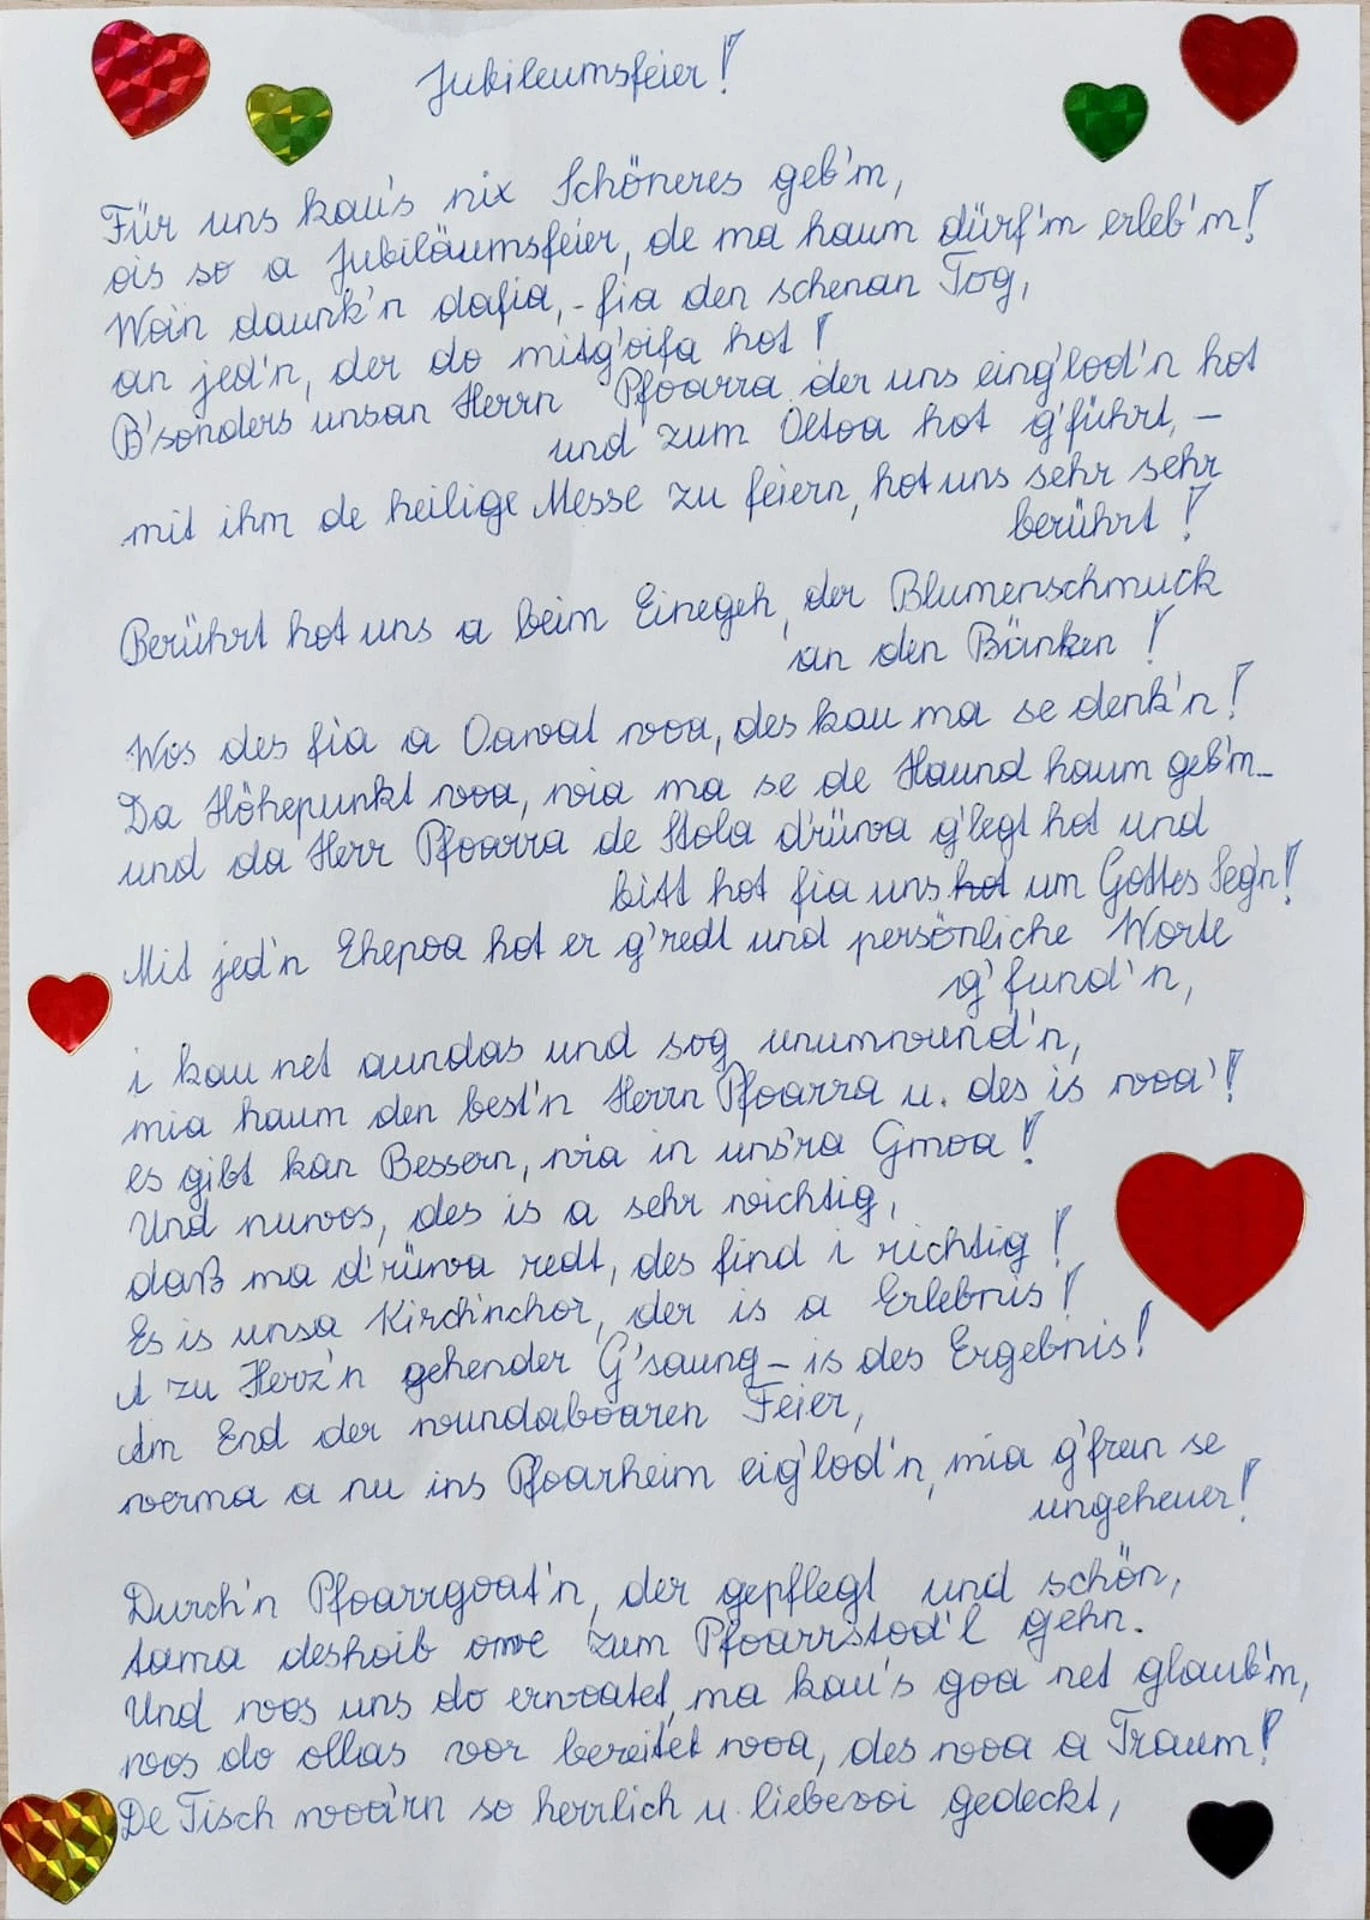 Jubileumsfeier!
Für uns kau's nix Schöneres geb'm,
ois so a Jubiläumsfeier, de ma haum dürf'm erleb'm!
Woin daunk'n dafia, - fia den schenan Tog,
an jed'n, der do mitg'oifa hot!
B'sonders unsan Herrn Pfoarra der uns eing'lod'n hot
und zum Oltoa hot g'führt, -
mit ihm de heilige Messe zu feiern, hot uns sehr sehr
berührt!
Berührt hot uns a beim Einegeh, der Blumenschmuck
an den Bänken!
Wos des fia a Oawat woa, des kau ma se denk'n!
Da Höhepunkt woa, wia ma se de Haund haum geb'm_
und da Herr Pfoarra de Stola d'rüwa g'legt hot und
bitt hot fia uns hot um Gottes Seg'n!
Mit jed'n Ehepoa hot er g'redt und persönliche Worte
g'fund'n,
i kau net aundas und sog unumwund'n,
mia haum den best'n Herrn Pfoarra u. des is woa'!
es gibt kan Bessern, wia in uns'ra Gmoa!
Und nuwos, des is a sehr wichtig,
daß ma d'rüwa redt, des find i richtig!
Es is unsa Kirch'nchor, der is a Erlebnis!
A zu Herz'n gehender G'saung - is des Ergebnis!
Am End der wundaboaren Feier,
werma a nu ins Pfoarheim eig'lod'n, mia g'frein se
ungeheuer!
Durch'n Pfoarrgoat'n, der gepflegt und schön,
tama deshoib owe zum Pfoarrstod'l gehn.
Und wos uns do erwoatet, ma kau's goa net glaub'm,
wos do ollas vor bereitet woa, des woa a Traum!
De Tisch wooa'rn so herrlich u. liebevoi gedeckt,